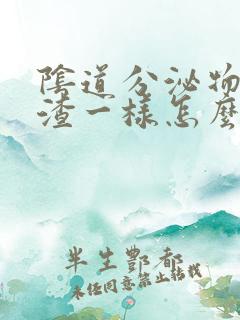 陰道分泌物
渣一樣怎麼
半生酆都
未经同意禁止转载